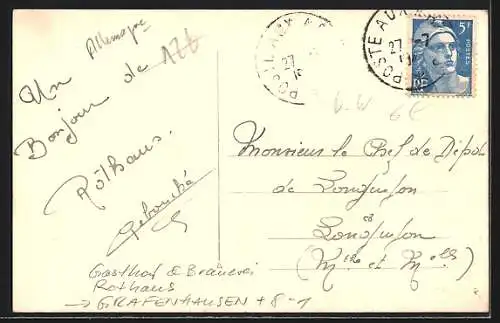 Allemagne
Un
Bonjour de
Rothaus.
POSTE AUX ARMÉES
27
5F
POSTES
RF
Monsieur le Chef de Dépôt
de Longuyon
à
Longuyon
(Mthe et Melle)
Gasthof & Brauerei
Rothaus
→ GRAFENHAUSEN + 8-1